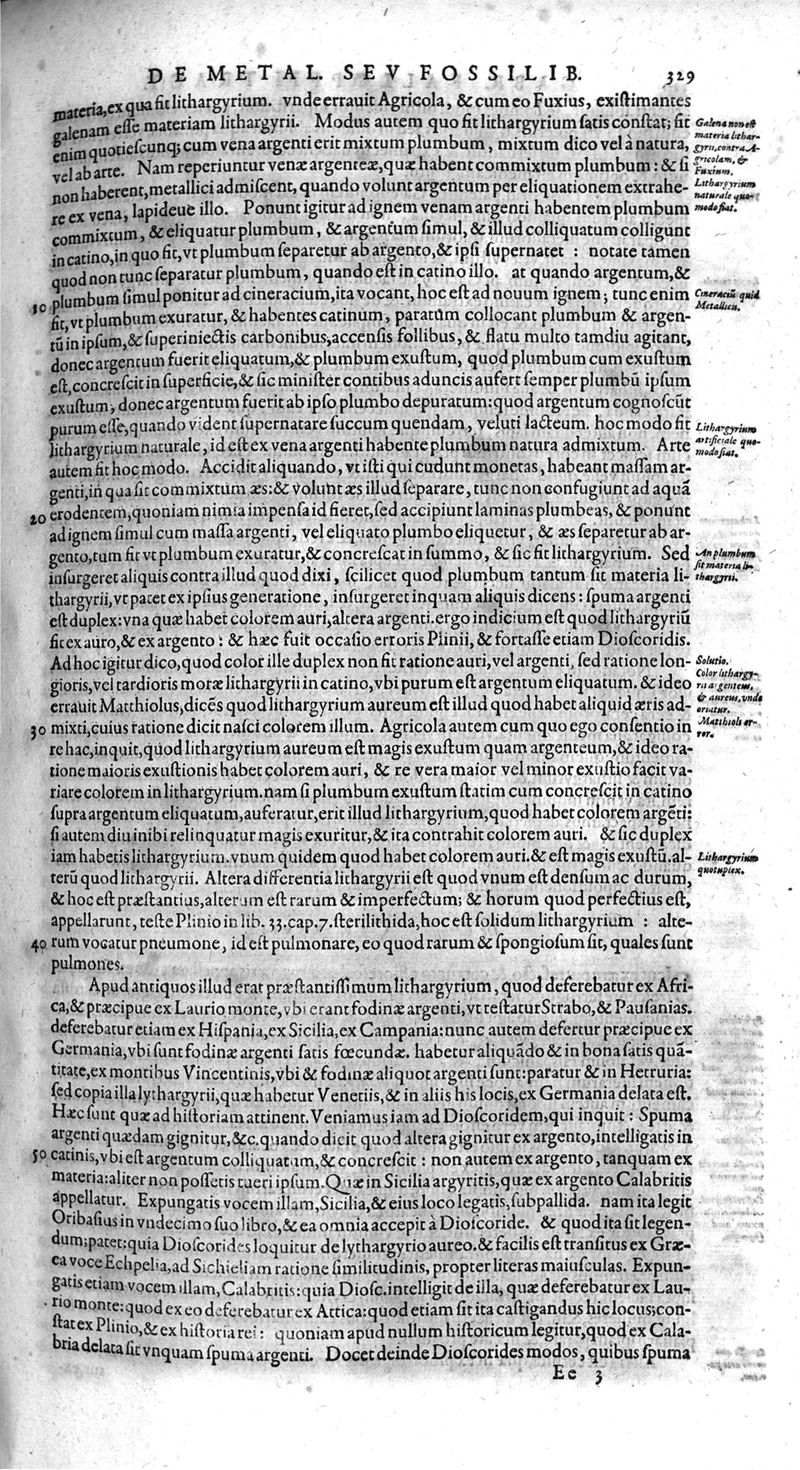 DE METAL. SEV FOSSILIB. 329
materia, ex qua fit lithargyrium. vnde errauit Agricola, & cum eo Fuxius, existimantes
galenam esse materiam lithargyrii. Modus autem quo fit lithargyrium satis constat; fit
enim quotiescunq; cum vena argenti erit mixtum plumbum, mixtum dico vel à natura,
vel ab arte. Nam reperiuntur venæ argenteæ, quæ habent commixtum plumbum: & si
non haberent, metallici admiscent, quando volunt argentum per eliquationem extrahe-
re ex vena, lapideue illo. Ponunt igitur ad ignem venam argenti habentem plumbum
commixtum, & eliquatur plumbum, & argentum simul, & illud colliquatum colligunt
in catino, in quo fit, vt plumbum separetur ab argento, & ipsi supernatet : notate tamen
quod non tunc separatur plumbum, quando est in catino illo. at quando argentum, &
10 plumbum simul ponitur ad cineracium, ita vocant, hoc est ad nouum ignem; tunc enim
fit, vt plumbum exuratur, & habentes catinum, paratum collocant plumbum & argen-
tũ in ipsum, & superiniectis carbonibus, accensis follibus, & flatu multo tamdiu agitant,
donec argentum fuerit eliquatum, & plumbum exustum, quod plumbum cum exustum
est, concrescit in superficie, & sic minister contibus aduncis aufert semper plumbũ ipsum
exustum, donec argentum fuerit ab ipso plumbo depuratum: quod argentum cognoscũt
purum esse, quando vident supernatare succum quendam, veluti lacteum. hoc modo fit
lithargyrium naturale, id est ex vena argenti habente plumbum natura admixtum. Arte
autem fit hoc modo. Accidit aliquando, vt isti qui cudunt monetas, habeant massam ar-
genti, in qua sit commixtum æs: & volunt æs illud separare, tunc non confugiunt ad aquã
20 erodentem, quoniam nimia impensa id fieret, sed accipiunt laminas plumbeas, & ponunt
ad ignem simul cum massa argenti, vel eliquato plumbo eliquetur, & æs separetur ab ar-
gento, tum fit vt plumbum exuratur, & concrescat in summo, & sic fit lithargyrium. Sed
insurgeret aliquis contra illud quod dixi, scilicet quod plumbum tantum sit materia li-
thargyrii, vt patet ex ipsius generatione, insurgeret inquam aliquis dicens: spuma argenti
est duplex: vna quæ habet colorem auri, altera argenti. ergo indicium est quod lithargyriũ
fit ex auro, & ex argento: & hæc fuit occasio erroris Plinii, & fortasse etiam Dioscoridis.
Ad hoc igitur dico, quod color ille duplex non fit ratione auri, vel argenti, sed ratione lon-
gioris, vel tardioris moræ lithargyrii in catino, vbi purum est argentum eliquatum. & ideo
errauit Matthiolus, dicẽs quod lithargyrium aureum est illud quod habet aliquid æris ad-
30 mixti, cuius ratione dicit nasci colorem illum. Agricola autem cum quo ego consentio in
re hac, inquit, quod lithargyrium aureum est magis exustum quam argenteum, & ideo ra-
tione maioris exustionis habet colorem auri, & re vera maior vel minor exustio facit va-
riare colorem in lithargyrium. nam si plumbum exustum statim cum concrescit in catino
supra argentum eliquatum, auferatur, erit illud lithargyrium, quod habet colorem argẽti:
si autem diu inibi relinquatur magis exuritur, & ita contrahit colorem auri. & sic duplex
iam habetis lithargyrium. vnum quidem quod habet colorem auri. & est magis exustũ. al-
terũ quod lithargyrii. Altera differentia lithargyrii est quod vnum est densum ac durum,
& hoc est præstantius, alterum est rarum & imperfectum; & horum quod perfectius est,
appellarunt, teste Plinio in lib. 33. cap. 7. sterilithida, hoc est solidum lithargyrium : alte-
40 rum vocatur pneumone, id est pulmonare, eo quod rarum & spongiosum sit, quales sunt
pulmones.
Apud antiquos illud erat præstantissimum lithargyrium, quod deferebatur ex Afri-
ca, & præcipue ex Laurio monte, vbi erant fodinæ argenti, vt testatur Strabo, & Pausanias.
deferebatur etiam ex Hispania, ex Sicilia, ex Campania: nunc autem defertur præcipue ex
Germania, vbi sunt fodinæ argenti satis fœcundæ. habetur aliquãdo & in bona satis quã-
titate, ex montibus Vincentinis, vbi & fodinæ aliquot argenti sunt: paratur & in Hetruria:
sed copia illa lythargyrii, quæ habetur Venetiis, & in aliis his locis, ex Germania delata est.
Hæc sunt quæ ad historiam attinent. Veniamus iam ad Dioscoridem, qui inquit: Spuma
argenti quædam gignitur, &c. quando dicit quod altera gignitur ex argento, intelligatis in
50 catinis, vbi est argentum colliquatum, & concrescit : non autem ex argento, tanquam ex
materia: aliter non possetis tueri ipsum. Quæ in Sicilia argyritis, quæ ex argento Calabritis
appellatur. Expungatis vocem illam, Sicilia, & eius loco legatis, subpallida. nam ita legit
Oribasius in vndecimo suo libro, & ea omnia accepit à Dioscoride. & quod ita sit legen-
dum; patet: quia Dioscorides loquitur de lythargyrio aureo. & facilis est transitus ex Græ-
ca voce Echpelia, ad Sichieliam ratione similitudinis, propter literas maiusculas. Expun-
gatis etiam vocem illam, Calabritis: quia Diosc. intelligit de illa, quæ deferebatur ex Lau-
rio monte: quod ex eo deferebatur ex Attica: quod etiam sit ita castigandus hic locus; con-
stat ex Plinio, & ex historia rei: quoniam apud nullum historicum legitur, quod ex Cala-
bria delata sit vnquam spuma argenti. Docet deinde Dioscorides modos, quibus spuma
Ee 3
Galena non est
materia lithar-
gyrii, contra A-
gricolam, &
Fuxium.
Lithargyrium
naturale quo-
modo fiat.
Cineraciũ quid
Metallicis.
Lithargyrium
artificiale quo-
modo fiat.
An plumbum
sit materia li-
thargyrii.
Solutio.
Color lithargy-
rii argenteus,
& aureus, vnde
oriatur.
Matthioli er-
ror.
Lithargyrium
quotuplex.